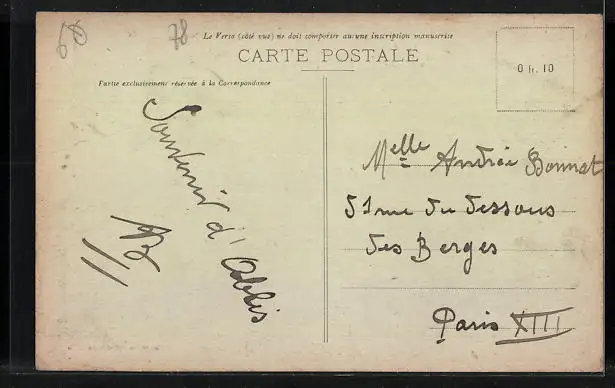 60
78
Le Verso (côté vue) ne doit comporter aucune inscription manuscrite
CARTE POSTALE
Partie exclusivement réservée à la Correspondance
0 fr. 10
Souvenir d'Ablis
AB
Melle Andrée Bonnat
51 rue du dessous
des Berges
Paris XIII